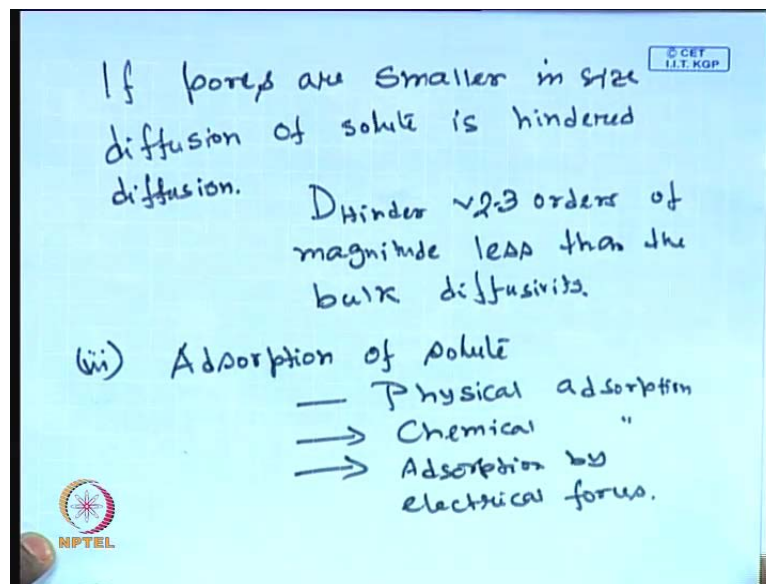 © CET
I.I.T. KGP
If pores are smaller in size
diffusion of solute is hindered
diffusion.
DHinder ~2-3 orders of
magnitude less than the
bulk diffusivity.
(iii) Adsorption of solute
— Physical adsorption
→ Chemical "
→ Adsorption by
electrical forces.
NPTEL